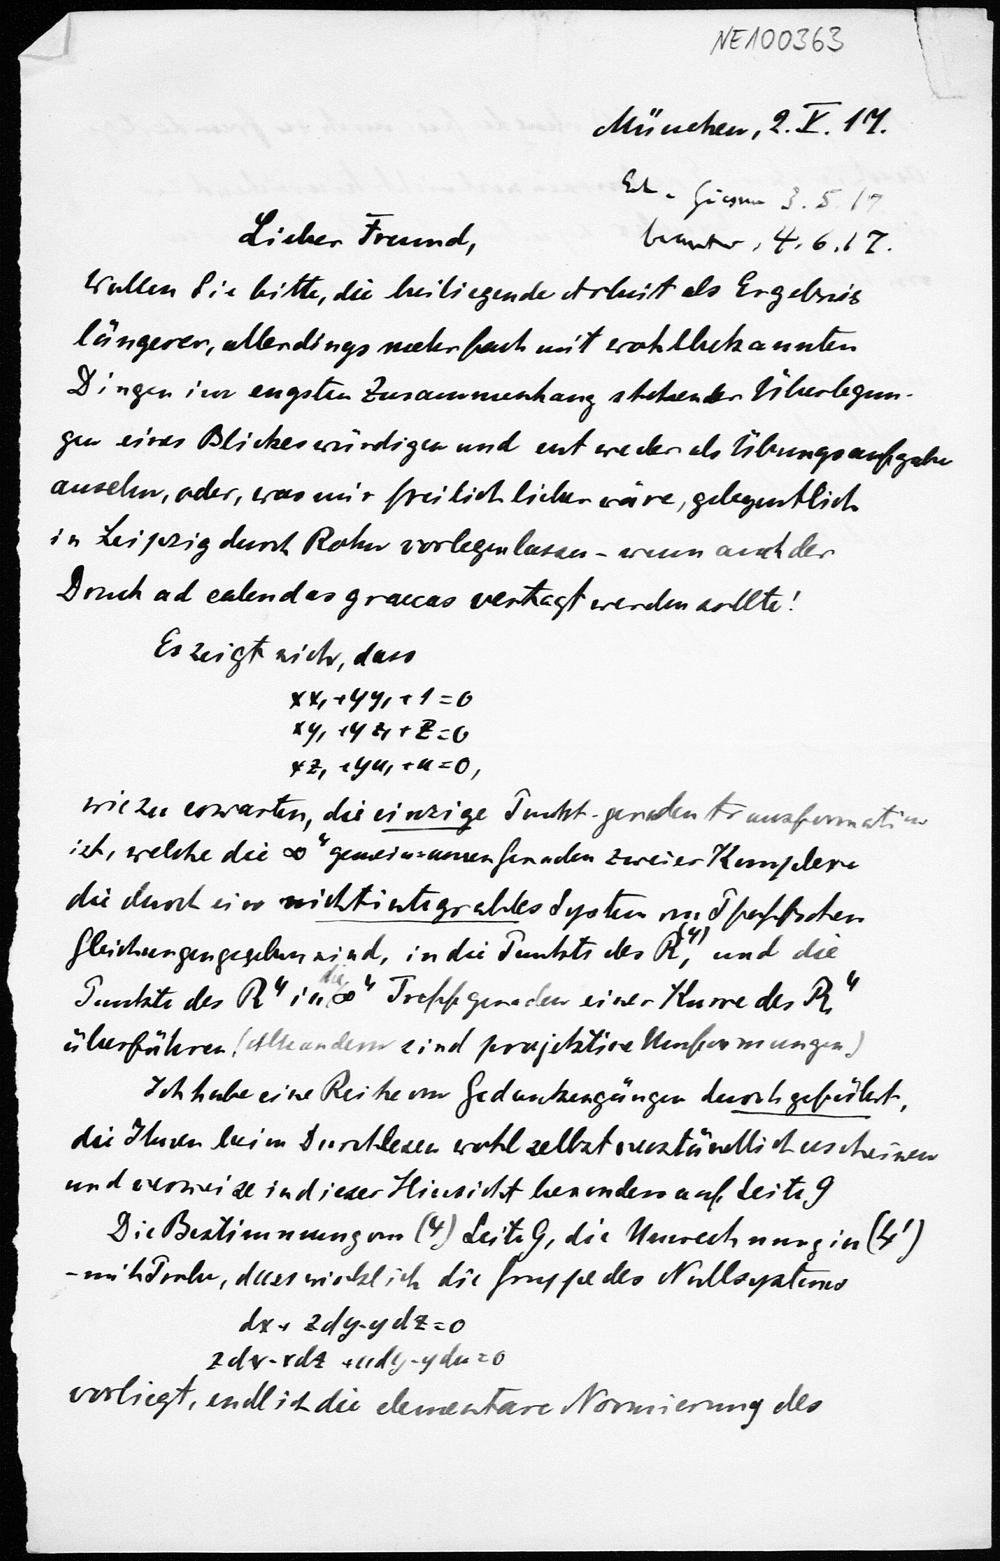 NE100363
München, 2. V. 17.
Erh. Giessen 3.5.17
beantw., 4.6.17.
Lieber Freund,
wollen Sie bitte, die beiliegende Arbeit als Ergebnis
längerer, allerdings mehrfach mit wohlbekannten
Dingen im engsten Zusammenhang stehender Überlegun-
gen eines Blickes würdigen und entweder als Übungsaufgabe
ansehn, oder, was mir freilich lieber wäre, gelegentlich
in Leipzig durch Rohn vorlegen lassen – wenn auch der
Druck ad calendas graecas vertagt werden sollte!
Es zeigt sich, dass
xx₁+yy₁+1=0
xy₁+yz₁+z=0
xz₁+yu₁+u=0,
wie zu erwarten, die einzige Punkt-geraden transformation
ist, welche die ∞⁴ gemeinsamen Geraden zweier Komplexe
die durch ein nichtintegrables System von Pfaffschen
Gleichungen gegeben sind, in die Punkte des R₁⁽⁴⁾, und die
Punkte des R⁴ in die ∞⁴ Treffgeraden einer Kurve des R₁⁴
überführen (Alle andern sind projektive Umformungen)
Ich habe eine Reihe von Gedankengängen durchgeführt,
die Ihnen beim Durchlesen wohl selbstverständlich erscheinen
und verweise in dieser Hinsicht besonders auf Seite 9
Die Bestimmung von (4) Seite 9, die Umrechnung in (4')
– mit Probe, dass wirklich die Gruppe des Nullsystems
dx+zdy-ydz=0
zdx-xdz+udy-ydu=0
vorliegt, endlich die elementare Normierung des